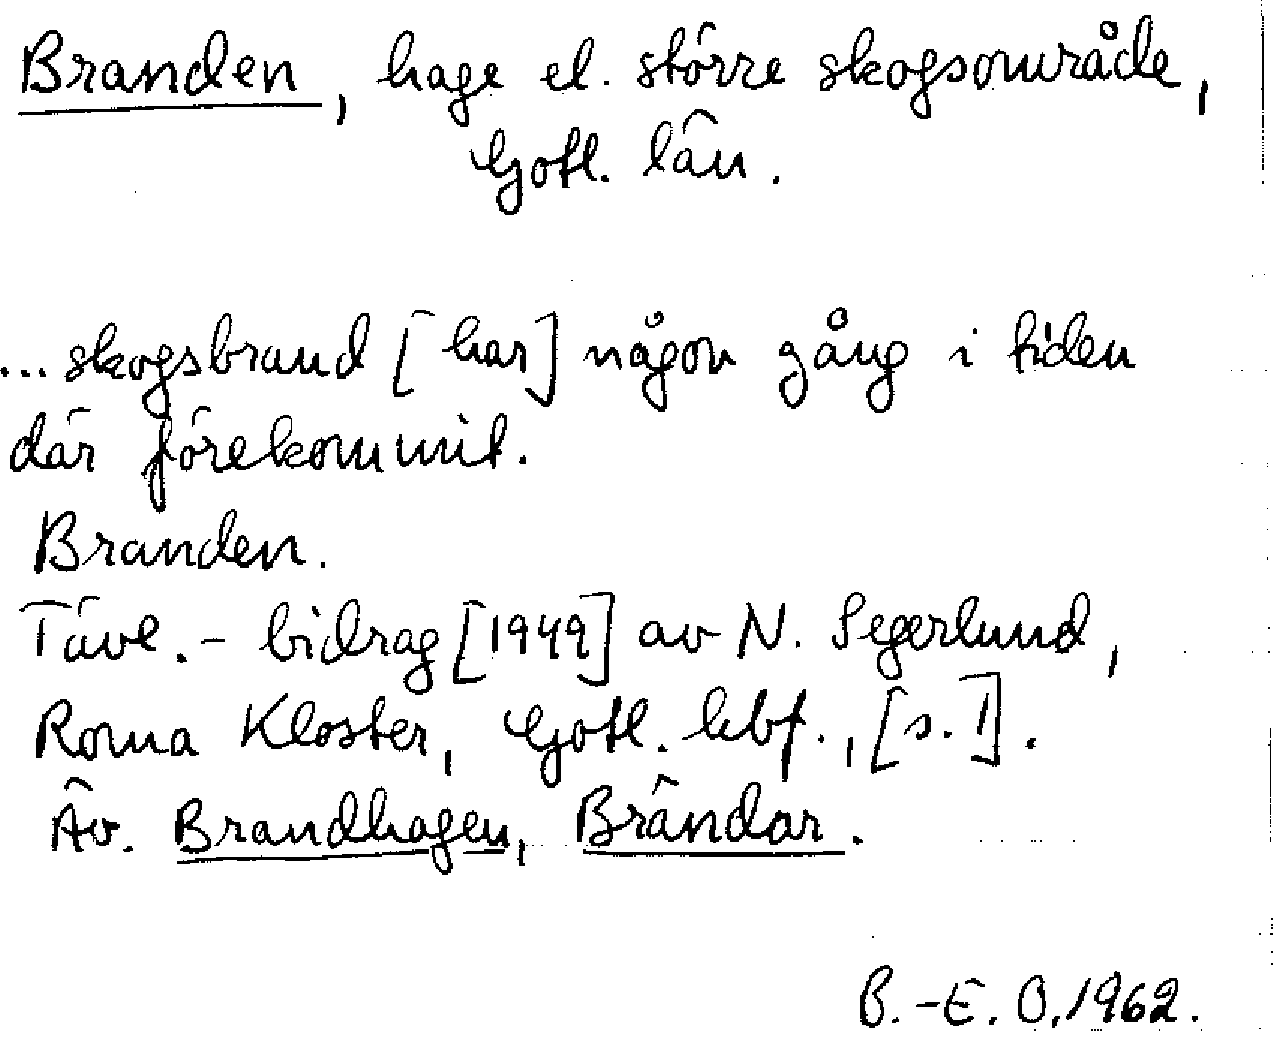 Branden, hage el. större skogsområde,
Gotl. län.
... skogsbrand [har] någon gång i tiden
där förekommit.
Branden.
Tävl.- bidrag [1949] av N. Segerlund,
Roma Kloster, Gotl. hbf., [s. 1].
Äv. Brandhagen, Brändar.
B.-E. O. 1962.